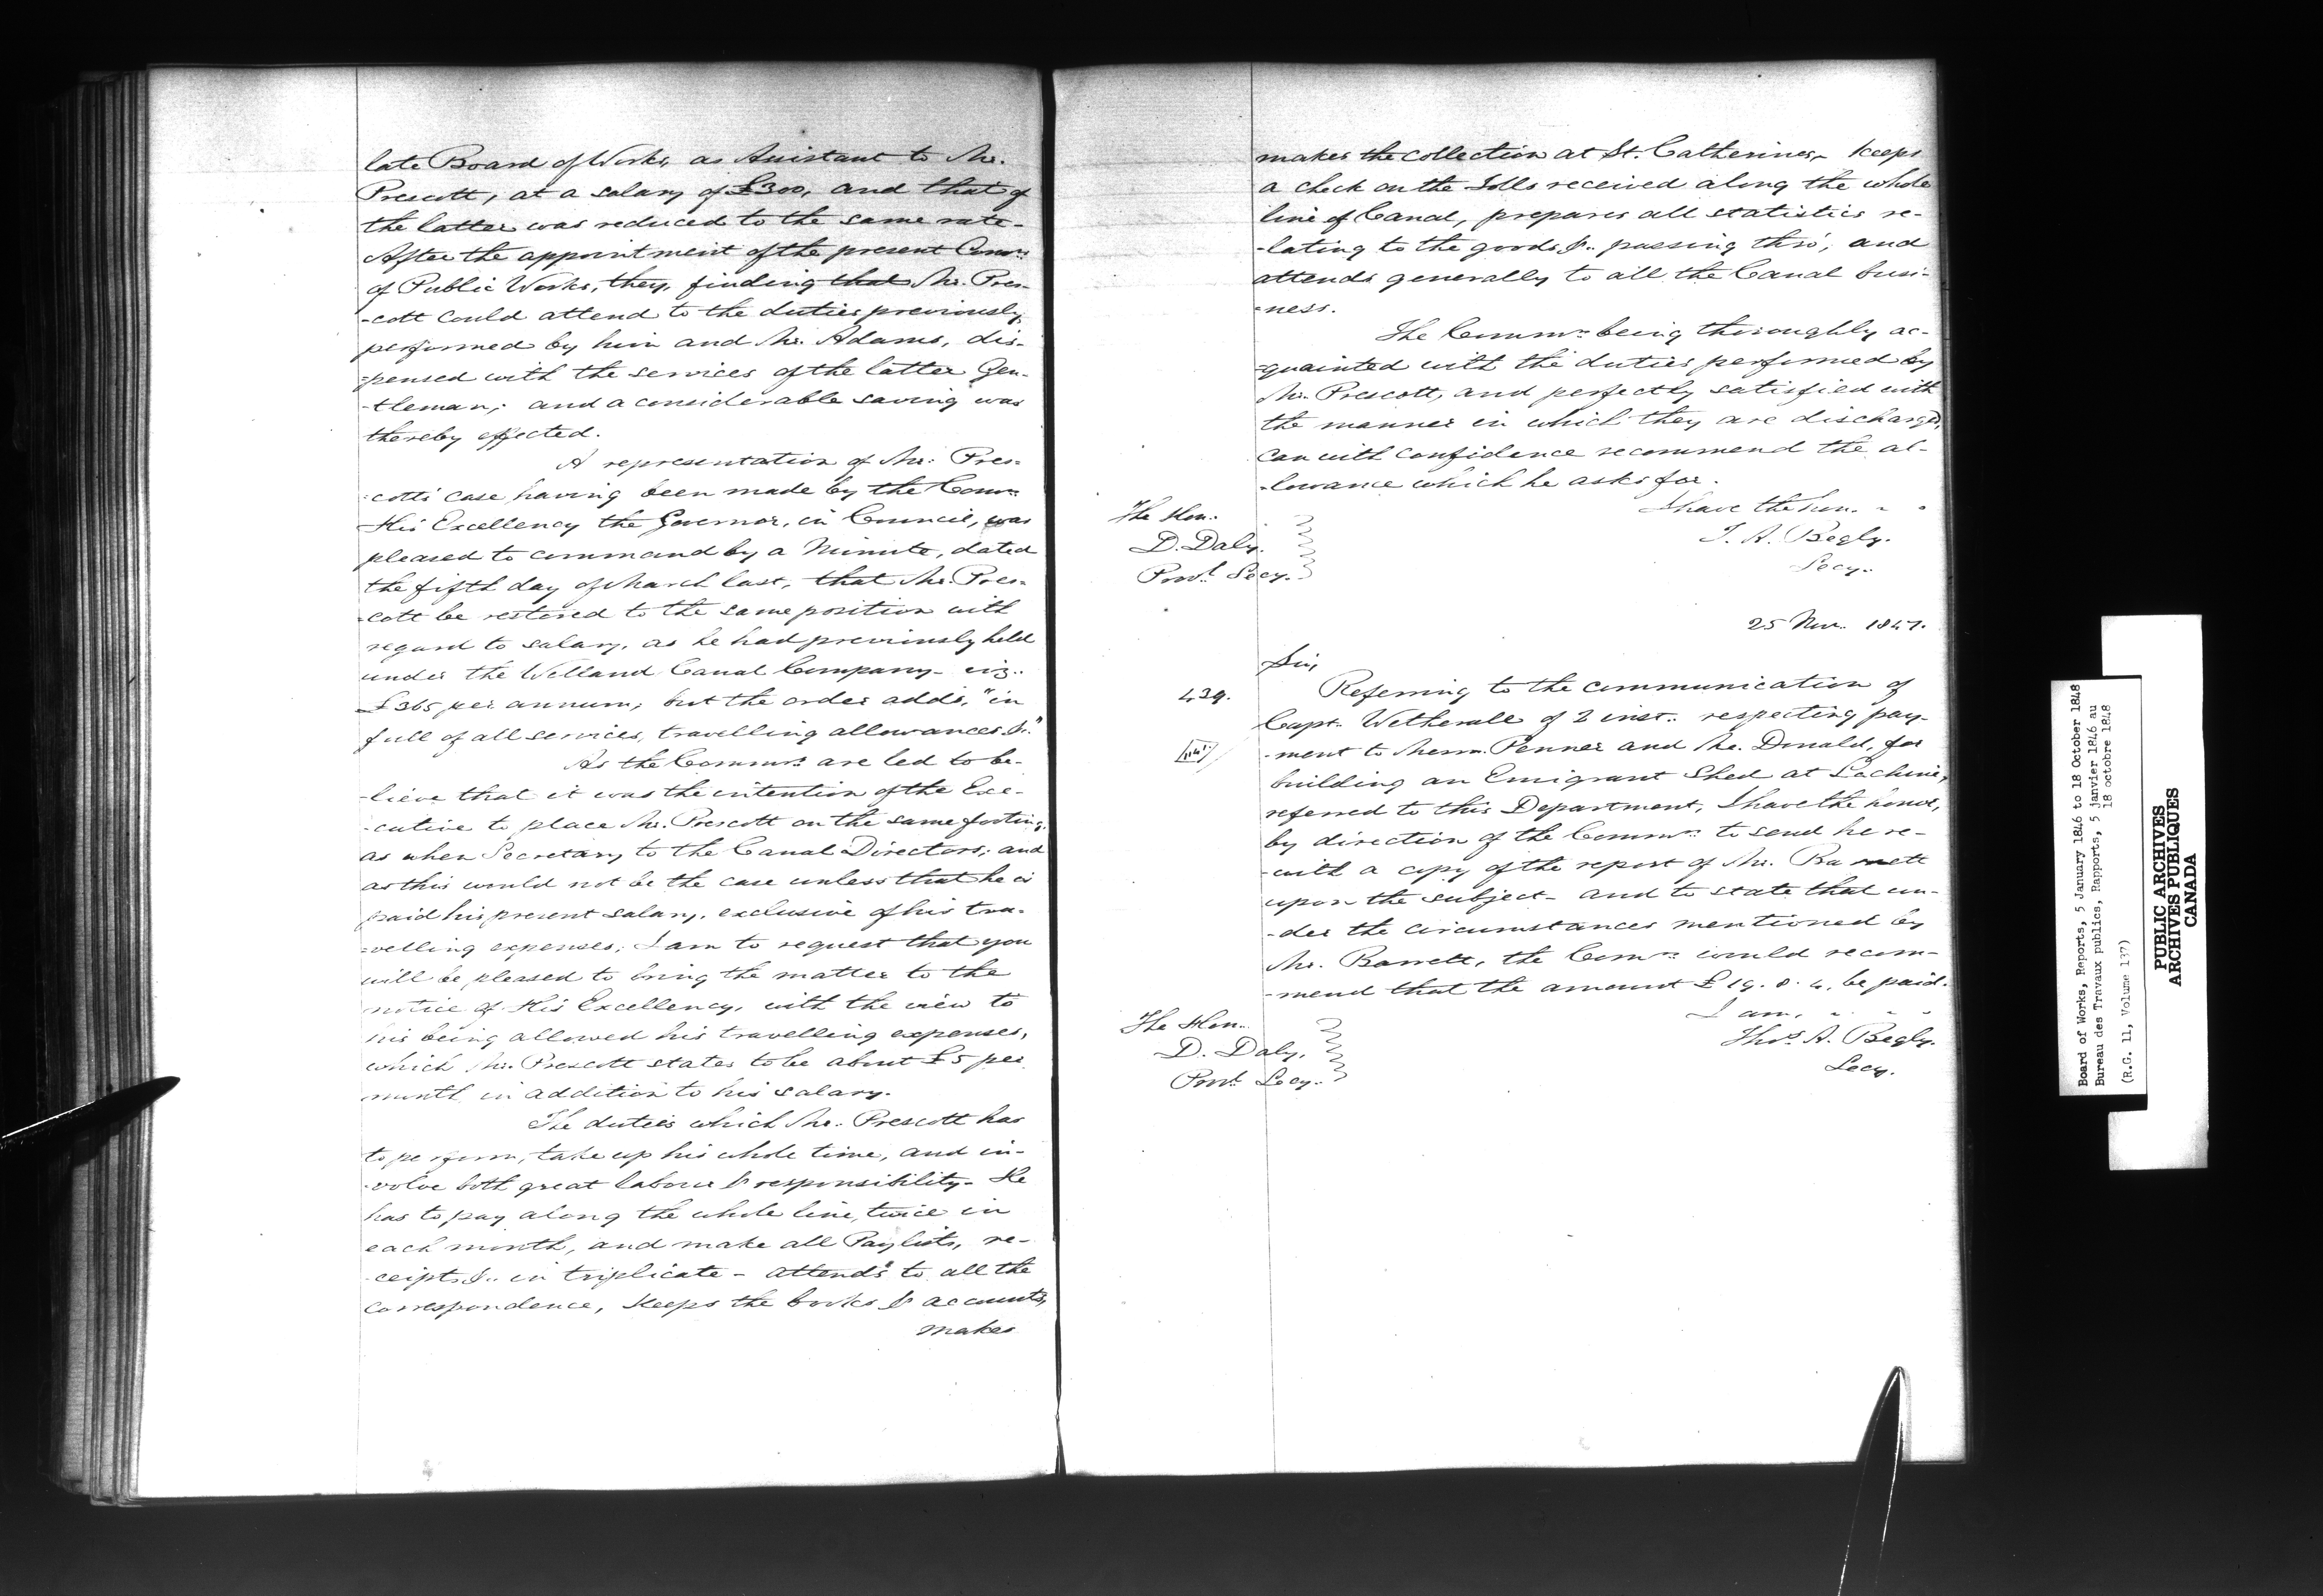 late Board of Works, as Assistant to Mr.
Prescott, at a salary of £300, and that of
the latter was reduced to the same rate.
After the appointment of the present Comrs.
of Public Works, they, finding that Mr. Pres-
-cott could attend to the duties previously
performed by him and Mr. Adams, dis-
-pensed with the services of the latter Gen-
-tleman; and a considerable saving was
thereby effected.
A representation of Mr. Pres-
-cott's case having been made by the Comrs.
His Excellency the Governor, in Council, was
pleased to command by a Minute, dated
the fifth day of March last, that Mr. Pres-
-cott be restored to the same position with
regard to salary, as he had previously held
under the Welland Canal Company - viz..
£365 per annum; but the order adds, "in
full of all services, travelling allowances &c."
As the Commrs. are led to be-
-lieve that it was the intention of the Exe-
-cutive to place Mr. Prescott on the same footing,
as when Secretary to the Canal Directors; and
as this would not be the case unless that he is
paid his present salary, exclusive of his tra-
-velling expenses; I am to request that you
will be pleased to bring the matter to the
notice of His Excellency, with the view to
his being allowed his travelling expenses,
which Mr. Prescott states to be about £5 per
month in addition to his salary.
The duties which Mr. Prescott has
to perform, take up his whole time, and in-
-volve both great labour & responsibility. He
has to pay along the whole line, twice in
each month, and make all Paylists, re-
-ceipts &c. in triplicate - attends to all the
correspondence, keeps the books & accounts,
makes
makes the collection at St. Catherines, keeps
a check on the Tolls received along the whole
line of Canal, prepares all statistics re-
-lating to the goods &c. passing thro', and
attends generally to all the Canal busi-
-ness.
The Commrs. being thoroughly ac-
-quainted with the duties performed by
Mr. Prescott, and perfectly satisfied with
the manner in which they are discharged,
can with confidence recommend the al-
-lowance which he asks for.
I have the hon. " "
T. A. Begly.
Secy.
The Hon.
D. Daly.
Provl. Secy.
25 Nov. 1847.
Sir,
439.
Referring to the communication of
Capt. Wetherall of 2 inst. respecting pay-
-ment to Messrs. Penner and Mc. Donald, for
building an Emigrant Shed at Lachine,
referred to this Department, I have the honor,
by direction of the Commrs. to send here-
-with a copy of the report of Mr. Barrett
upon the subject - and to state that un-
-der the circumstances mentioned by
Mr. Barrett, the Comrs. would recom-
-mend that the amount £19. 8. 4. be paid.
I am, " " "
Thos. A. Begly.
Secy.
The Hon.
D. Daly,
Provl. Secy.
Board of Works, Reports, 5 January 1846 to 18 October 1848
Bureau des Travaux publics, Rapports, 5 janvier 1846 au
18 octobre 1848
(R.G. 11, Volume 137)
PUBLIC ARCHIVES
ARCHIVES PUBLIQUES
CANADA